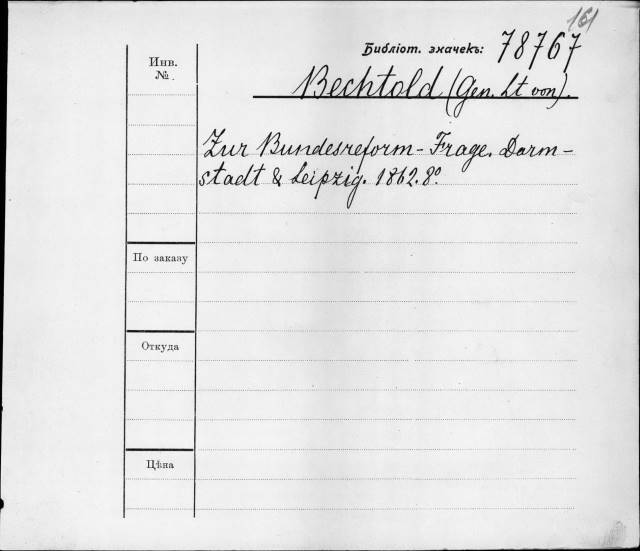 161
Инв.
№.
Библіот. значекъ: 78767
Bechtold (Gen. Lt von).
Zur Bundesreform-Frage. Darm-
stadt & Leipzig. 1862. 8º.
По заказу
Откуда
Цѣна